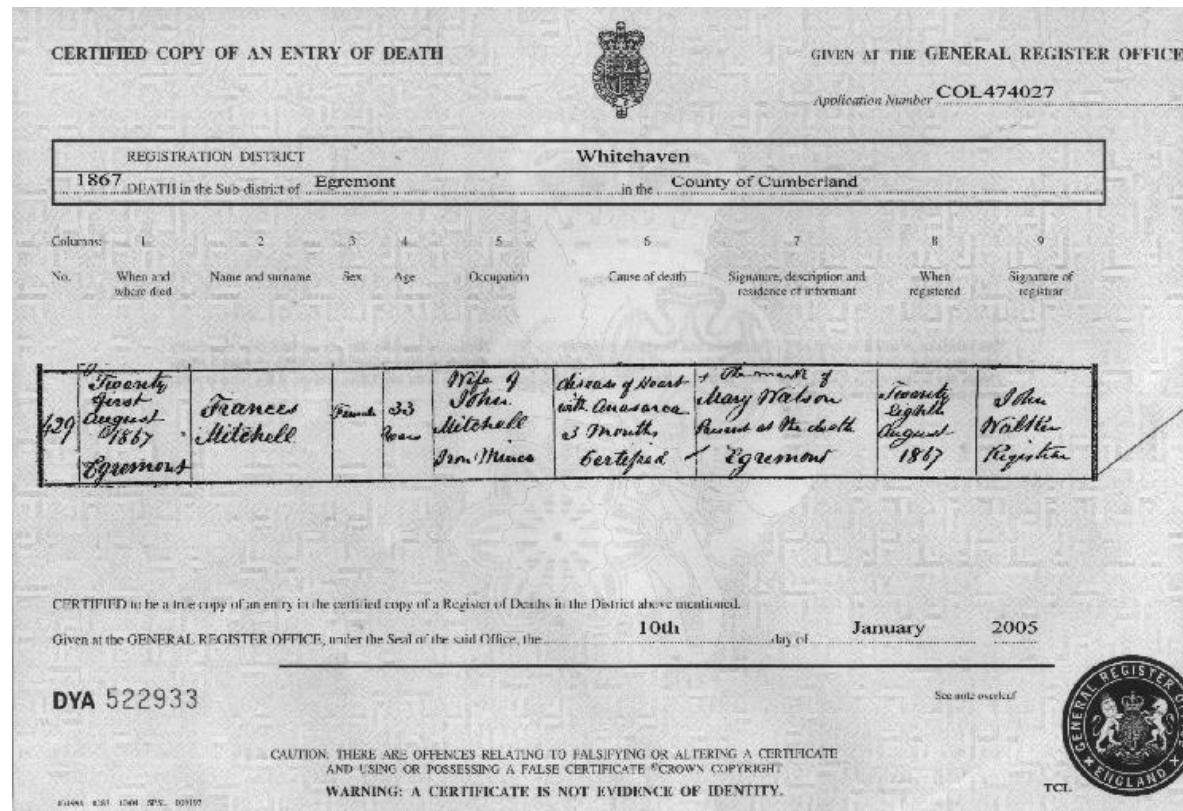 CERTIFIED COPY OF AN ENTRY OF DEATH
GIVEN AT THE GENERAL REGISTER OFFICE
Application Number COL474027
REGISTRATION DISTRICT Whitehaven
1867 DEATH in the Sub-district of Egremont in the County of Cumberland
Columns:- 1 2 3 4 5 6 7 8 9
No. When and where died Name and surname Sex Age Occupation Cause of death Signature, description and residence of informant When registered Signature of registrar
429
Twenty
first
August
1867
Egremont
Frances
Mitchell
Female
33
Years
Wife of
John
Mitchell
Iron Miner
disease of Heart
with Anasarca
3 Months
Certified
The mark of
Mary Watson
Present at the death
Egremont
Twenty
Eighth
August
1867
John
Registrar
CERTIFIED to be a true copy of an entry in the certified copy of a Register of Deaths in the District above mentioned.
Given at the GENERAL REGISTER OFFICE, under the Seal of the said Office, the 10th day of January 2005
DYA 522933
See note overleaf
CAUTION: THERE ARE OFFENCES RELATING TO FALSIFYING OR ALTERING A CERTIFICATE
AND USING OR POSSESSING A FALSE CERTIFICATE ©CROWN COPYRIGHT
WARNING: A CERTIFICATE IS NOT EVIDENCE OF IDENTITY.
TCL
GENERAL REGISTER
ENGLAND